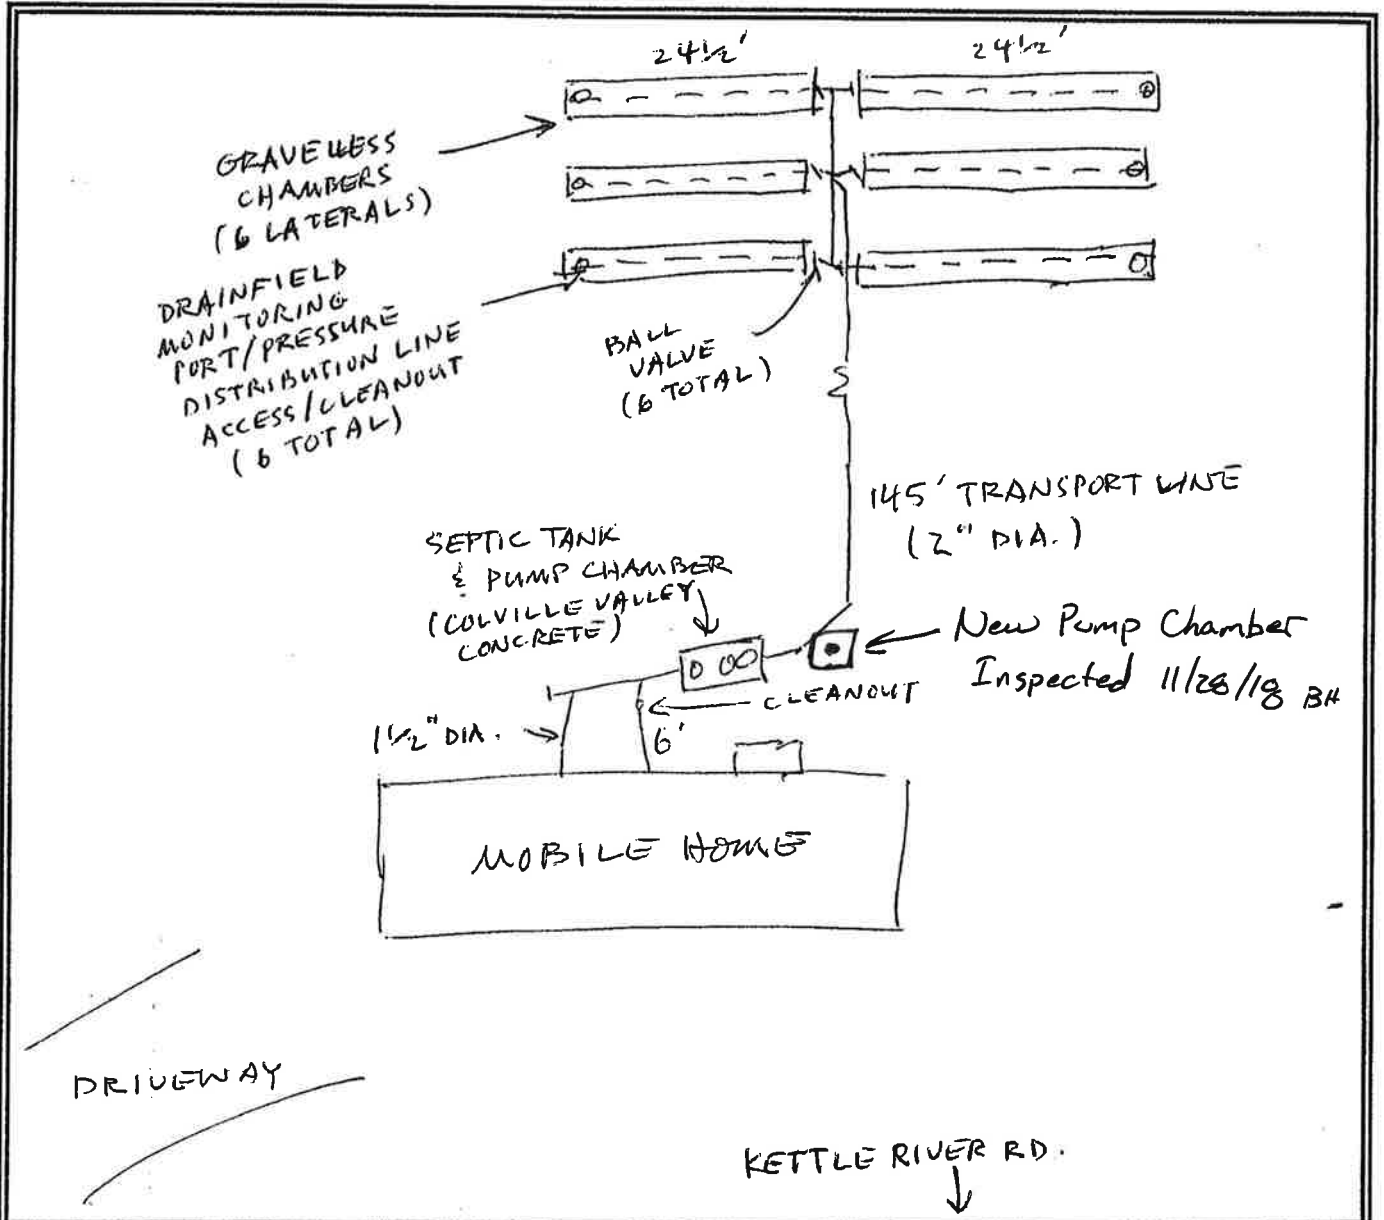 24 1/2' 24 1/2'
GRAVELLESS
CHAMBERS
(6 LATERALS)
DRAINFIELD
MONITORING
PORT/PRESSURE
DISTRIBUTION LINE
ACCESS/CLEANOUT
(6 TOTAL)
BALL
VALVE
(6 TOTAL)
145' TRANSPORT LINE
(2" DIA.)
SEPTIC TANK
& PUMP CHAMBER
(COLVILLE VALLEY
CONCRETE)
New Pump Chamber
Inspected 11/28/18 BH
CLEANOUT
1 1/2" DIA.
6'
MOBILE HOME
DRIVEWAY
KETTLE RIVER RD.